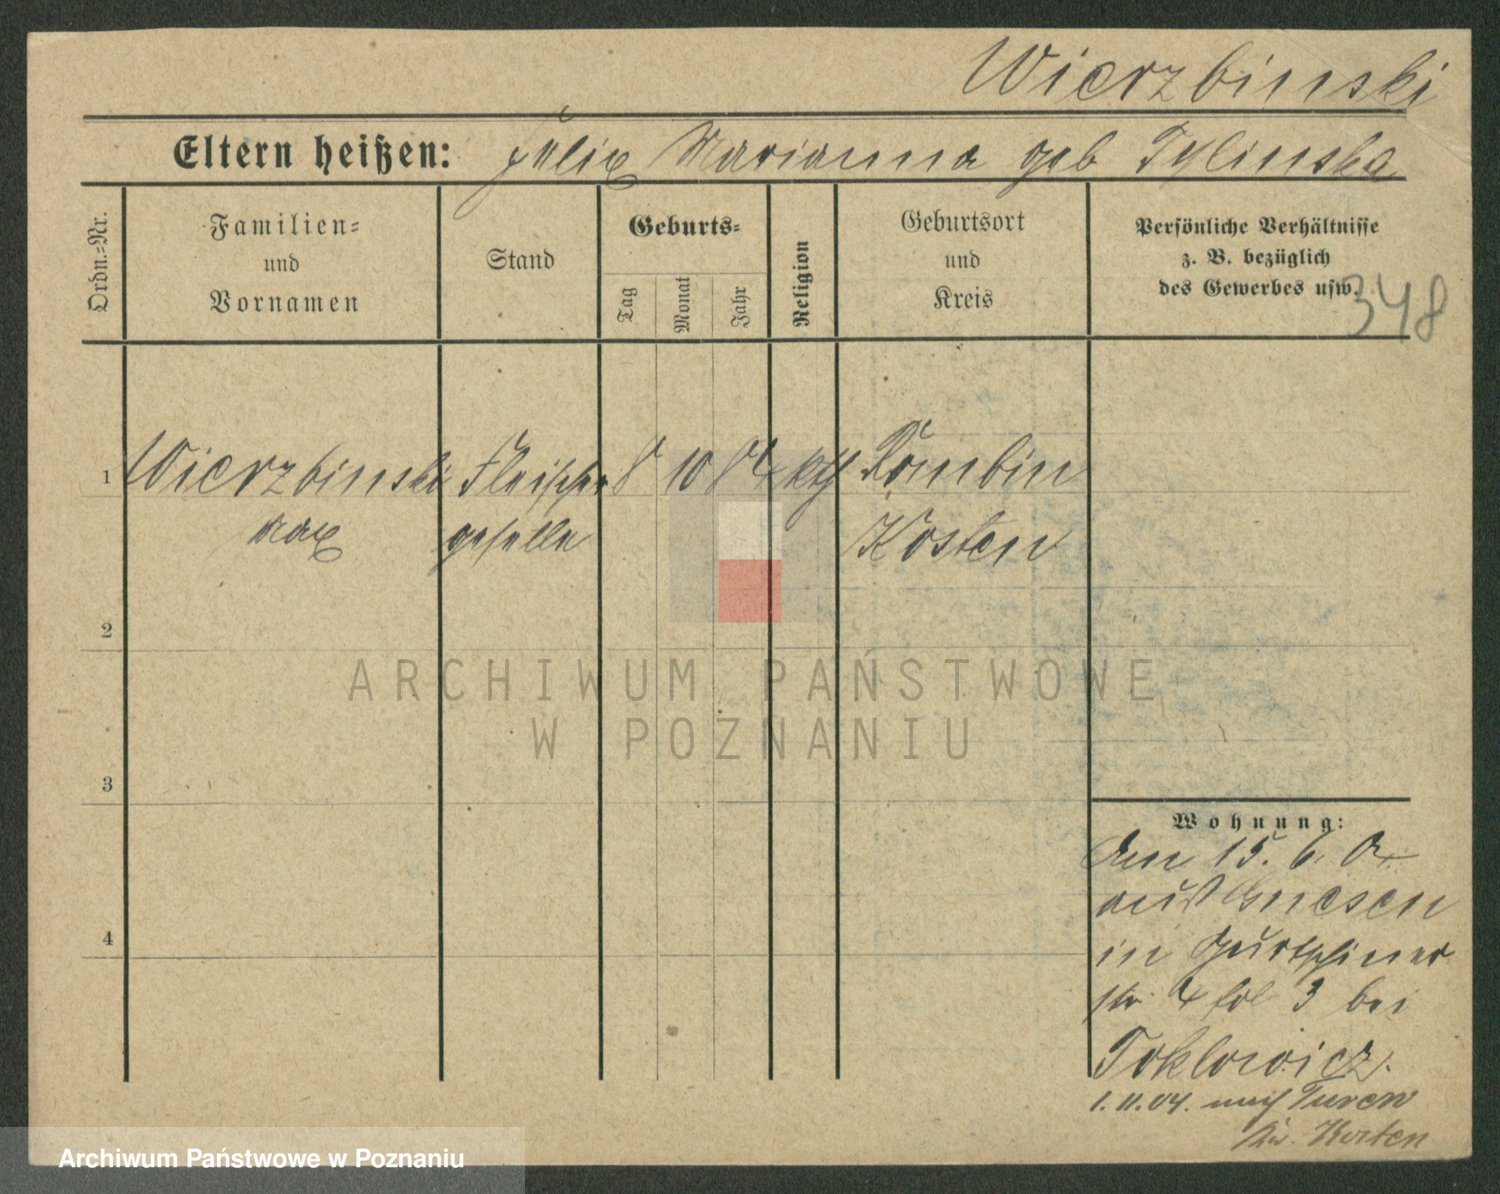 Wierzbinski
Eltern heißen: Felix Marianna geb Tylinska
Ordn.-Nr.
Familien-
und
Vornamen
Stand
Geburts-
Tag
Monat
Jahr
Religion
Geburtsort
und
Kreis
Persönliche Verhältnisse
z. B. bezüglich
des Gewerbes usw.
348
1 Wierzbinski Fleischer 8 10 84 kth Rombin
Max geselle Kosten
2
3
4
Wohnung:
Am 15. 6. 04
aus Gnesen
in Gurtschiner
str. 4 bei
Toklowicz.
1. 11. 04. nach Turew
Kr. Kosten
ARCHIWUM PAŃSTWOWE
W POZNANIU
Archiwum Państwowe w Poznaniu